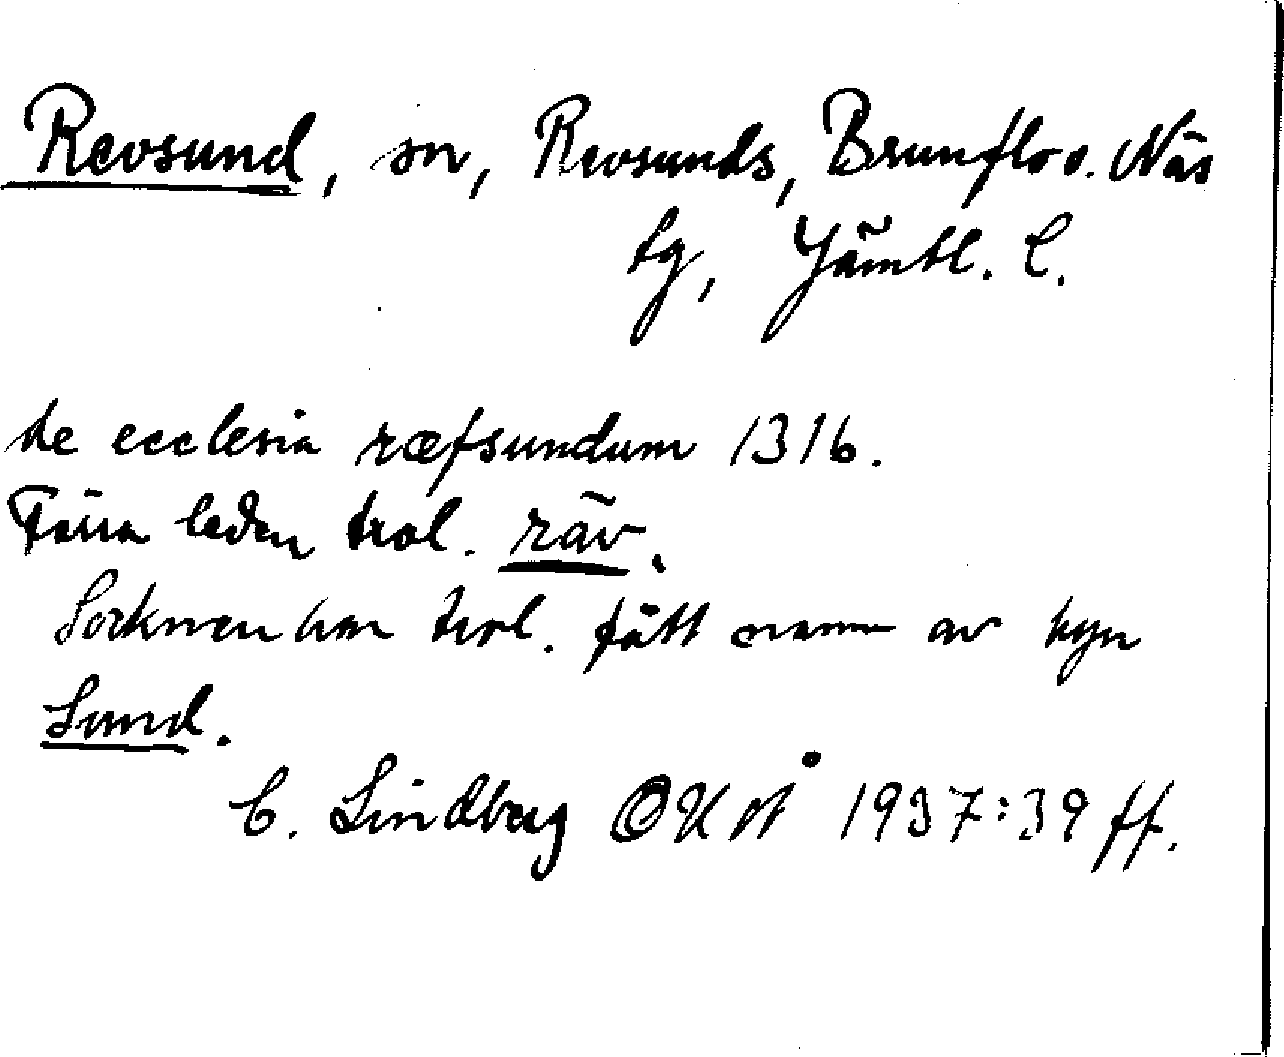 Revsund, sn, Revsunds, Brunflo o. Näs
tg, Jämtl. l.
de ecclesia ræfsundum 1316.
Förra leden trol. räv.
Socknen har trol. fått namn av byn
Sund.
C. Lindberg OKÅ 1937:39 ff.